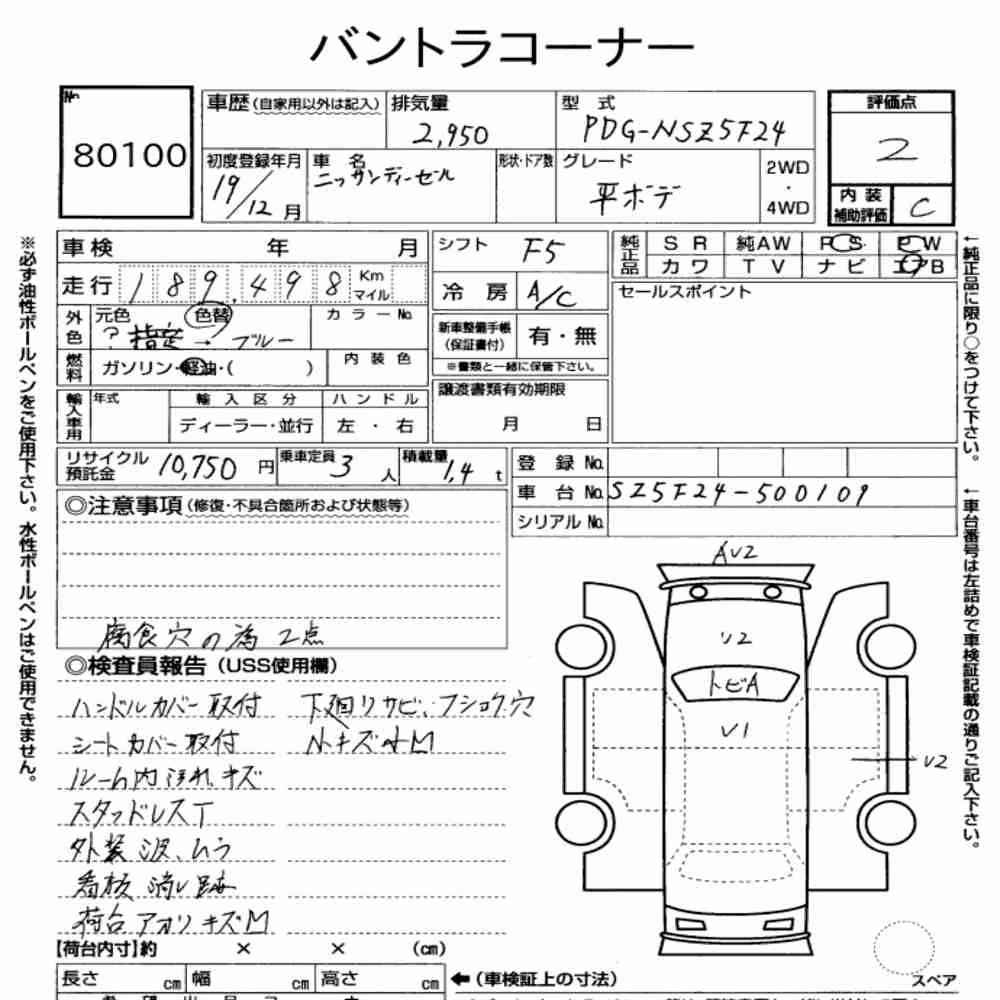 バントラコーナー
No.
80100
車歴(自家用以外は記入)
排気量
2,950
型式
PDG-NSZ5F24
評価点
2
初度登録年月
19/12月
車名
ニッサンディーゼル
形状・ドア数
グレード
平ボデ
2WD
・
4WD
内装
補助評価
C
車検 年 月
走行 189,498 Km
マイル
外色
元色 色替
? 指定 → ブルー
カラーNo.
燃料
ガソリン・軽油・( )
内装色
輸入車用
年式
輸入区分
ディーラー・並行
ハンドル
左・右
シフト F5
冷房 A/C
新車整備手帳
(保証書付)
有・無
※書類と一緒に保管下さい。
譲渡書類有効期限
月 日
純正品
SR 純AW PS PW
カワ TV ナビ エアB
セールスポイント
リサイクル
預託金
10,750円
乗車定員 3人
積載量 1,4t
登録No.
車台No. SZ5F24-500109
シリアルNo.
◎注意事項(修復・不具合箇所および状態等)
腐食穴の為2点
◎検査員報告(USS使用欄)
ハンドルカバー取付
シートカバー取付
ルーム内汚れ、キズ
スタッドレスT
外装波、ムラ
看板消し跡
荷台アオリキズM
下廻りサビ、フショク穴
小キズ小M
AV2
V2
トビA
V1
V2
スペア
【荷台内寸】約 × × (cm)
長さ cm 幅 cm 高さ cm
←(車検証上の寸法)
※必ず油性ボールペンをご使用下さい。水性ボールペンはご使用できません。
←純正品に限り○をつけて下さい。
←車台番号は左詰めで車検証記載の通りご記入下さい。